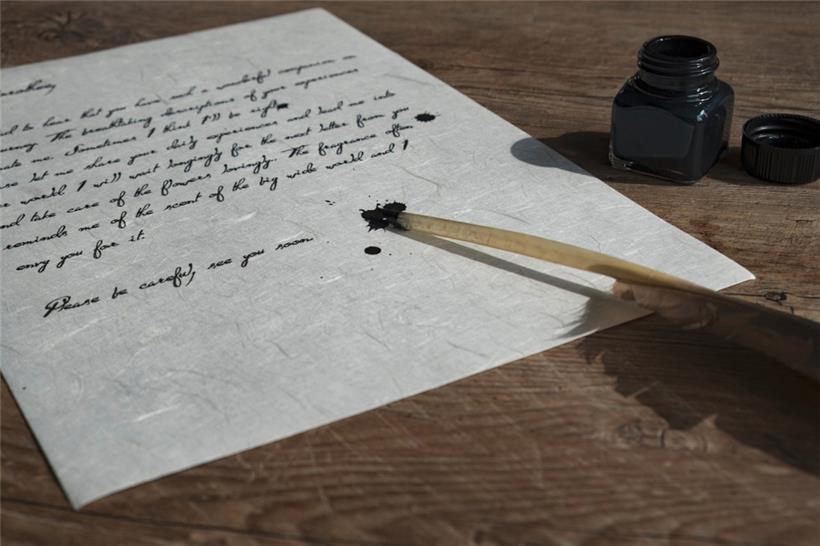 to hear that you have and a wonderful companion on
The breathtaking descriptions of your experiences
me. Sometimes I think I'll to eight
let me share your daily experiences and lead me into
world. I will wait longingly for the next letter from you
and take care of the flowers lovingly. The fragrance often
reminds me of the scent of the big wide world and I
envy you for it.
Please be careful, see you soon